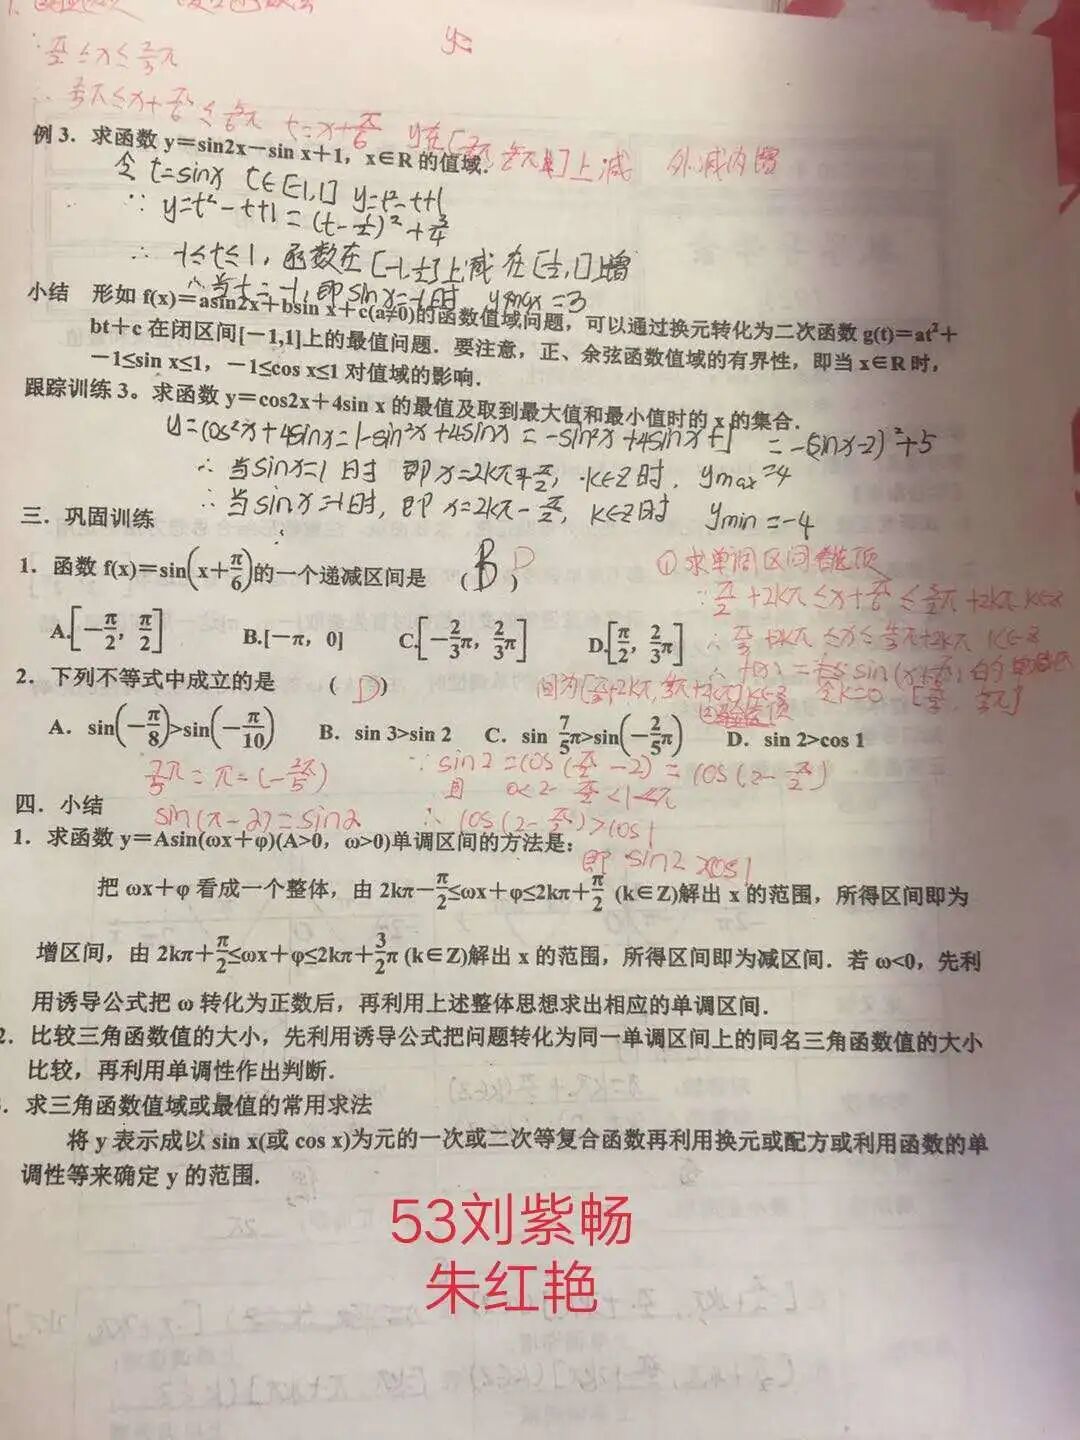 y=
∵ π/2 ≤x≤ 2/3π
∴ 2/3π≤x+π/6≤5/6π t=x+π/6 y在[2/3π, 5/6π]上减 外减内增
例 3．求函数 y＝sin2x－sin x＋1，x∈R 的值域．
令 t=sinx t∈[-1,1] y=t²-t+1
∵ y=t²-t+1=(t-1/2)²+3/4
∴ -1≤t≤1, 函数在[-1,1/2]上减 在[1/2,1]上增
∴当t=-1,即sinx=-1时 ymax=3
小结 形如 f(x)＝asin2x＋bsin x＋c(a≠0)的函数值域问题，可以通过换元转化为二次函数 g(t)＝at²＋
bt＋c 在闭区间[－1,1]上的最值问题．要注意，正、余弦函数值域的有界性，即当 x∈R 时，
－1≤sin x≤1，－1≤cos x≤1 对值域的影响．
跟踪训练 3。求函数 y＝cos2x＋4sin x 的最值及取到最大值和最小值时的 x 的集合．
y=cos²x+4sinx=1-sin²x+4sinx=-sin²x+4sinx+1 =-(sinx-2)²+5
∴ 当sinx=1时 即x=2kπ+π/2, k∈Z时, ymax=4
∴ 当sinx=-1时, 即x=2kπ-π/2, k∈Z时 ymin=-4
三．巩固训练
1．函数 f(x)＝sin(x＋π/6)的一个递减区间是 ( B ) D
①求单调区间
A.[－π/2，π/2] B.[－π，0] C.[－2/3π，2/3π] D.[π/2，2/3π]
∵π/2+2kπ≤x+π/6≤3/2π+2kπ k∈Z
∴π/3+2kπ≤x≤4/3π+2kπ k∈Z
2．下列不等式中成立的是 ( D )
令k=0 [π/3, 4/3π]
A．sin(－π/8)>sin(－π/10) B．sin 3>sin 2 C．sin 7/5π>sin(－2/5π) D．sin 2>cos 1
7/5π=π-(-2π/5) ∵sin2=cos(π/2-2)=cos(2-π/2)
且 0<2-π/2<1<π
四．小结
sin(π-2)=sin2 ∴cos(2-π/2)>cos1
1．求函数 y＝Asin(ωx＋φ)(A>0，ω>0)单调区间的方法是：
即 sin2>cos1
把 ωx＋φ 看成一个整体，由 2kπ－π/2≤ωx＋φ≤2kπ＋π/2 (k∈Z)解出 x 的范围，所得区间即为
增区间，由 2kπ＋π/2≤ωx＋φ≤2kπ＋3/2π (k∈Z)解出 x 的范围，所得区间即为减区间．若 ω<0，先利
用诱导公式把 ω 转化为正数后，再利用上述整体思想求出相应的单调区间．
2．比较三角函数值的大小，先利用诱导公式把问题转化为同一单调区间上的同名三角函数值的大小
比较，再利用单调性作出判断．
．求三角函数值域或最值的常用求法
将 y 表示成以 sin x(或 cos x)为元的一次或二次等复合函数再利用换元或配方或利用函数的单
调性等来确定 y 的范围．
53刘紫畅
朱红艳